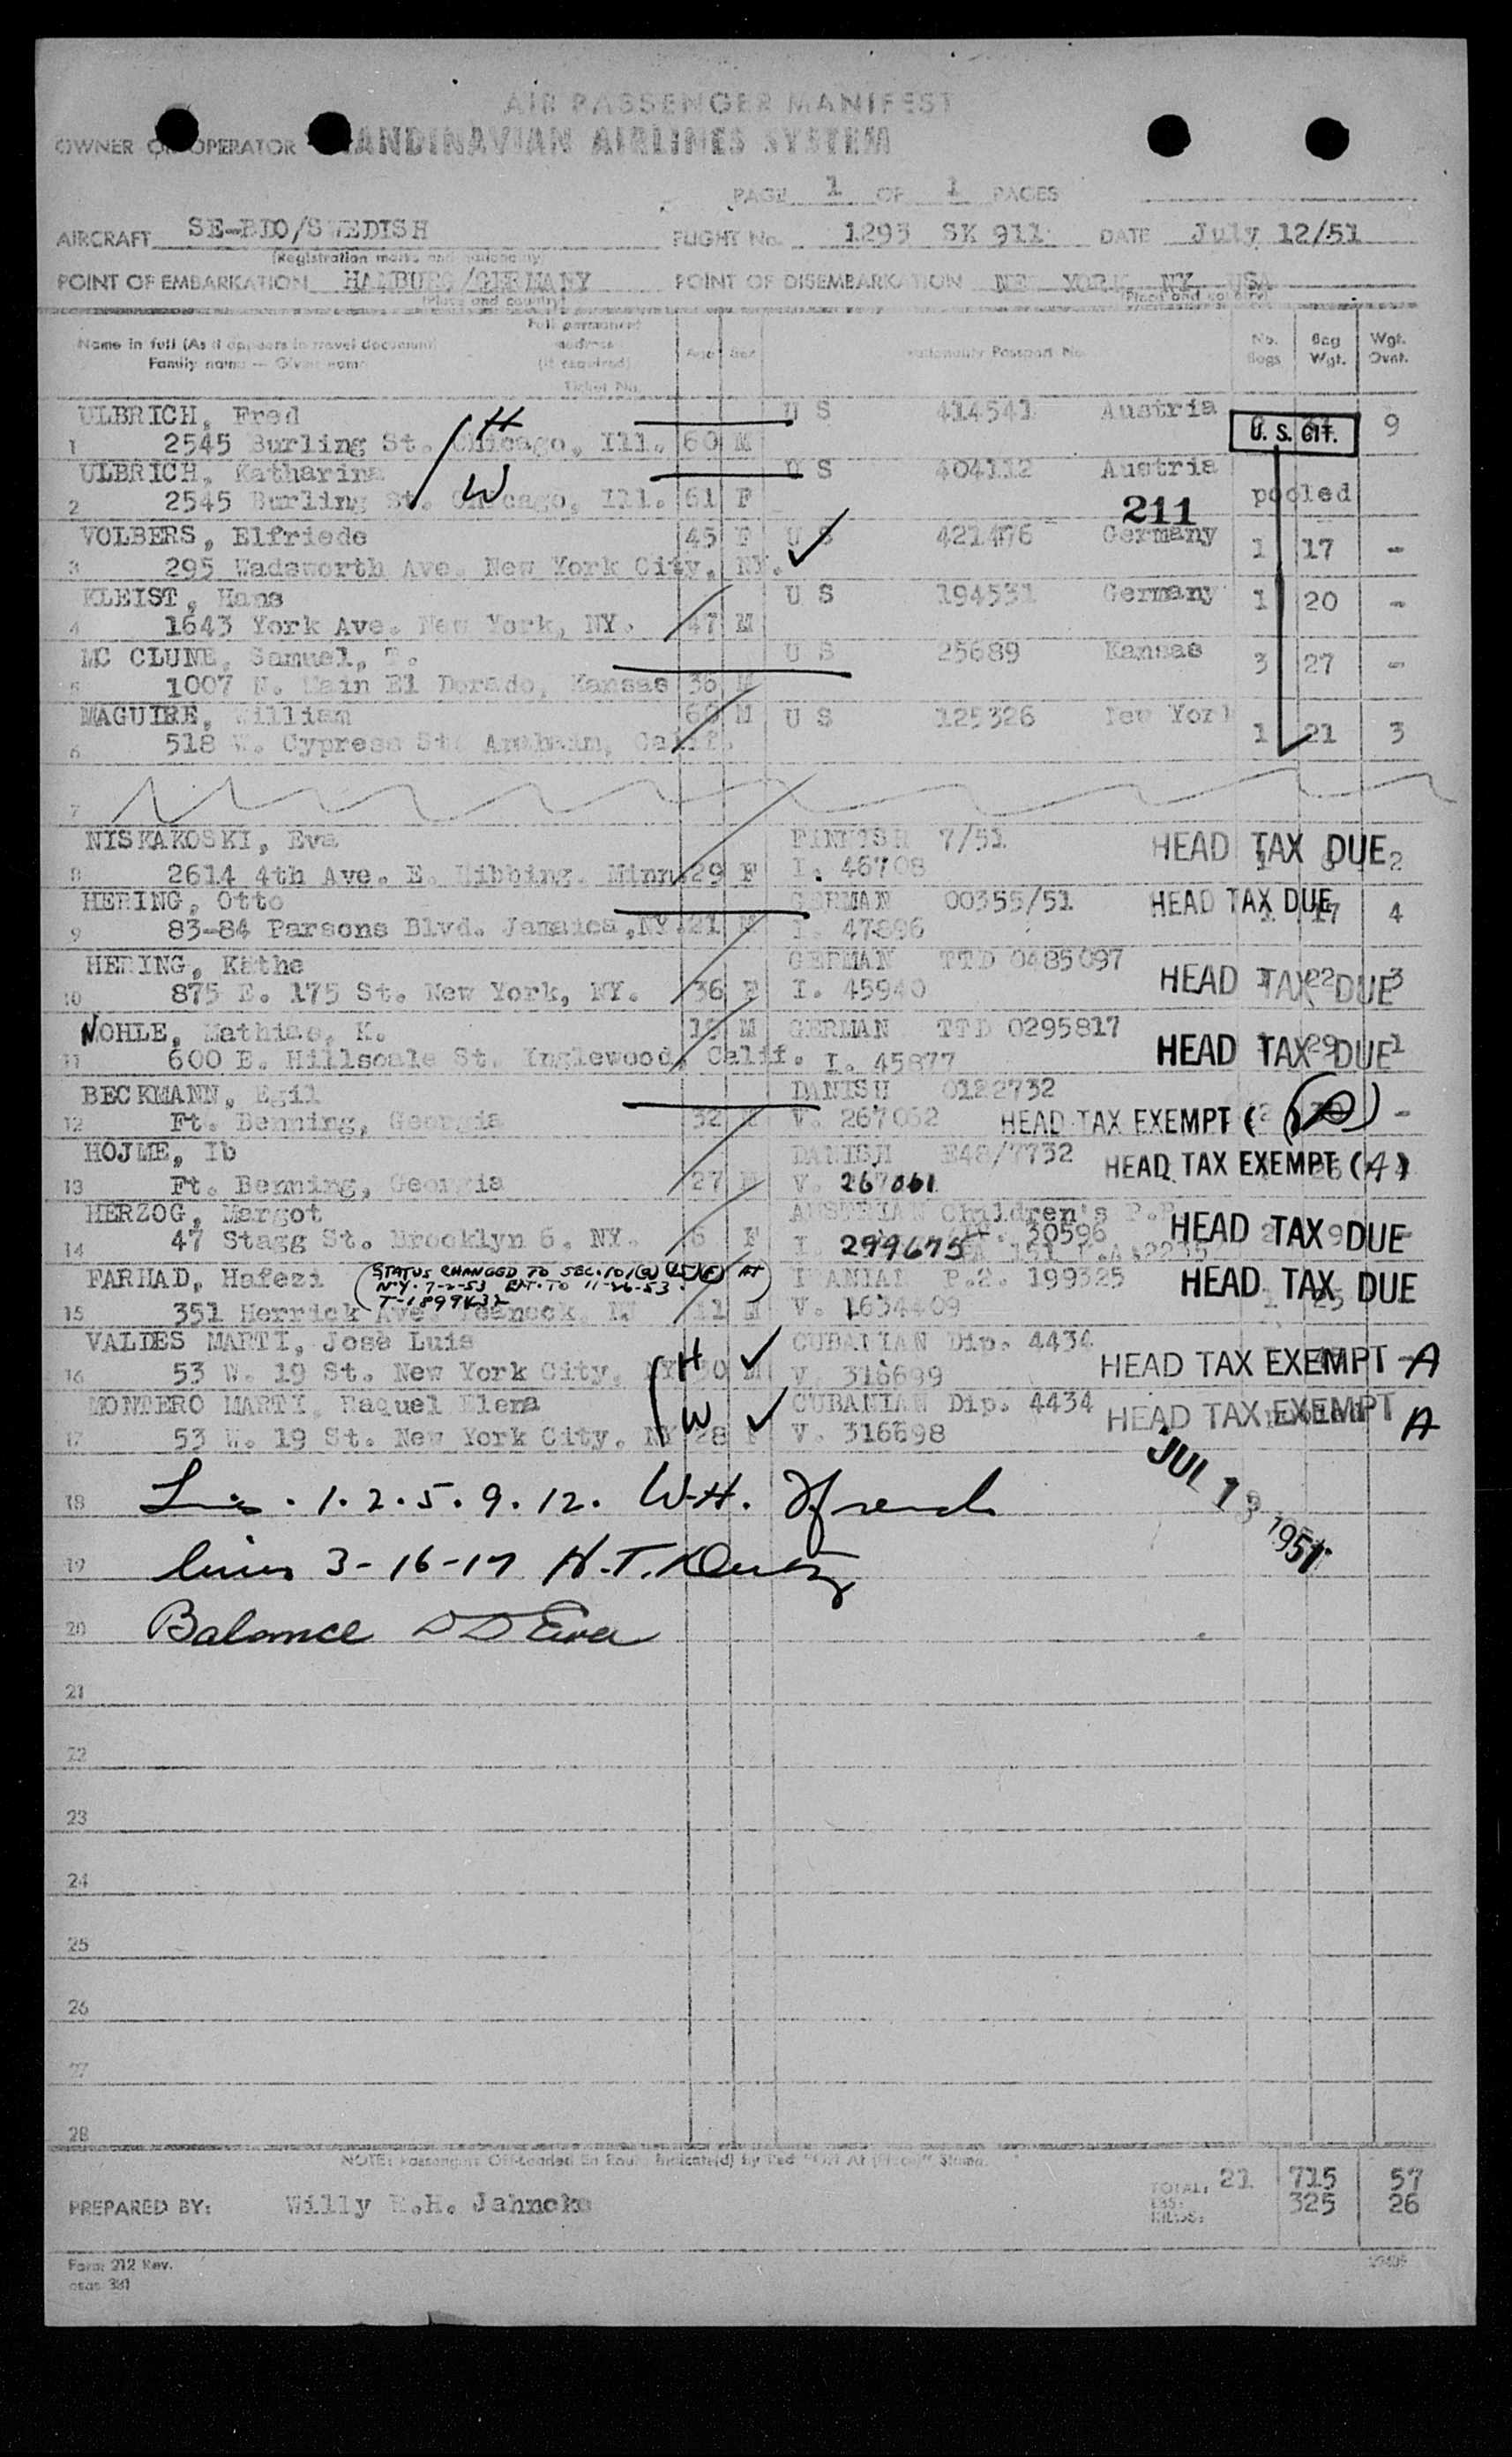 AIR PASSENGER MANIFEST
OWNER OR OPERATOR ANDINAVIAN AIRLINES SYSTEM
PAGE 1 OF 1 PAGES
AIRCRAFT SE-BDO/SWEDISH FLIGHT No. 1293 SK 911 DATE July 12/51
(Registration marks and nationality)
POINT OF EMBARKATION HAMBURG/GERMANY POINT OF DISEMBARKATION NEW YORK, NY USA
(Place and country) (Place and country)
Name in full (As it appears in travel document) Full permanent address (If required) Age Sex Nationality Passport No. No. Bags Bag Wgt. Wgt. Ovnt.
Family name — Given name
Ticket No.
ULBRICH, Fred H U S 414541 Austria U. S. CIT. 9
1 2545 Burling St. Chicago, Ill. 60 M
ULBRICH, Katharina U S 404112 Austria
2 2545 Burling St. Chicago, Ill. W 61 F 211 pooled
VOLBERS, Elfriede 45 F U S 421476 Germany 1 17 -
3 295 Wadsworth Ave. New York City, NY.
KLEIST, Hans U S 194531 Germany 1 20 -
4 1643 York Ave. New York, NY. 47 M
MC CLUNE, Samuel, T. U S 25689 Kansas 3 27 -
5 1007 N. Main El Dorado, Kansas 36 M
MAGUIRE, William 60 M U S 125326 New York 1 21 3
6 518 W. Cypress St. Anaheim, Calif.
7
NISKAKOSKI, Eva FINNISH 7/51 HEAD TAX DUE 2
8 2614 4th Ave. E. Hibbing. Minn. 29 F I. 46708
HERING, Otto GERMAN 00355/51 HEAD TAX DUE 17 4
9 83-84 Parsons Blvd. Jamaica, NY. 21 M I. 47896
HERING, Kathe GERMAN TTD 0485097 HEAD TAX DUE 22 3
10 875 E. 175 St. New York, NY. 36 F I. 45940
NOHLE, Mathias, K. M GERMAN TTD 0295817 HEAD TAX DUE 29 1
11 600 E. Hillsdale St. Inglewood, Calif. I. 45877
BECKMANN, Egil DANISH 0122732
12 Ft. Benning, Georgia 32 M V. 267062 HEAD TAX EXEMPT ( ) -
HOJME, Ib DANISH E48/7732 HEAD TAX EXEMPT (A)
13 Ft. Benning, Georgia 27 M V. 267061
HERZOG, Margot AUSTRIAN Children's P.P. 30596 HEAD TAX DUE
14 47 Stagg St. Brooklyn 6. NY. 6 F I. 299675
FARHAD, Hafezi (STATUS CHANGED TO SEC.101(a)(15)(F) AT IRANIAN P.2. 199325 HEAD TAX DUE
N.Y. 7-2-53 EXT. TO 11-26-53.
15 351 Herrick Ave. Teaneck, NJ 11 M V. 1634409
VALDES MARTI, Jose Luis CUBANIAN Dip. 4434
16 53 W. 19 St. New York City, NY H 30 M V. 316699 HEAD TAX EXEMPT - A
MONTERO MARTI, Raquel Elena CUBANIAN Dip. 4434 HEAD TAX EXEMPT A
17 53 W. 19 St. New York City, NY W 28 F V. 316698
JUL 13 1951
18 1. 2. 5. 9. 12. W.H.
19 lines 3-16-17 H.T.
20 Balance
21
22
23
24
25
26
27
28
NOTE: Passengers Off-Loaded En Route Indicate(d) by Red "Off At (Place)" Stamp.
TOTAL: 21 715 57
PREPARED BY: Willy R.H. Jahncke LBS: KILOS: 325 26
Form 212 Rev.